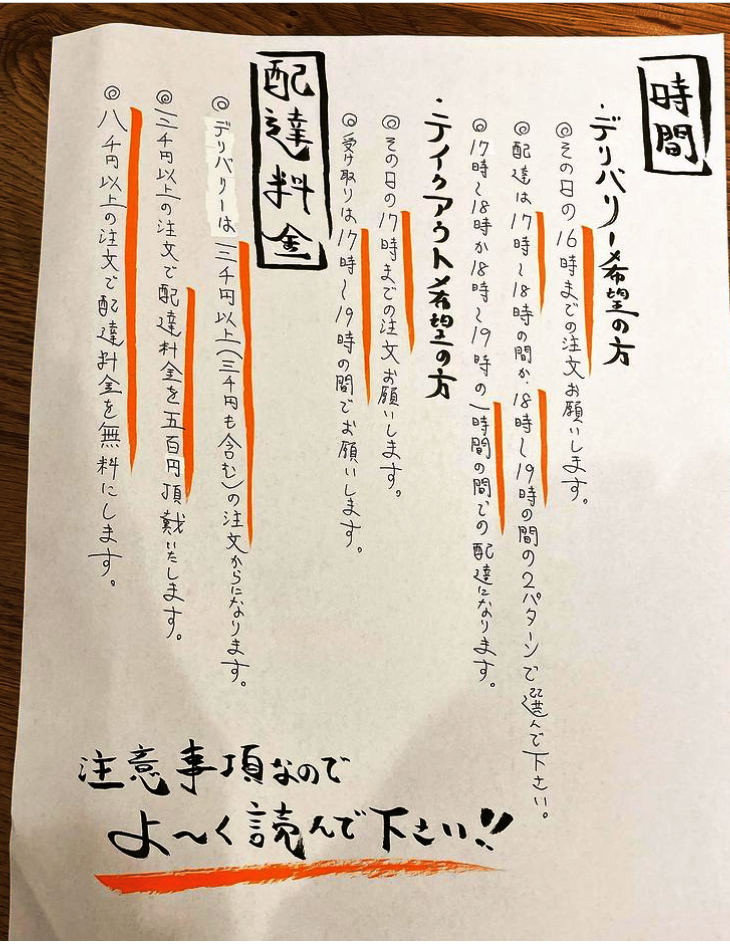 時間
・デリバリー希望の方
◎その日の16時までの注文お願いします。
◎配達は17時〜18時の間か、18時〜19時の間の2パターンで選んで下さい。
◎17時〜18時か18時〜19時の一時間の間での配達になります。
・テイクアウト希望の方
◎その日の17時までの注文お願いします。
◎受け取りは17時〜19時の間でお願いします。
配達料金
◎デリバリーは三千円以上(三千円も含む)の注文からになります。
◎三千円以上の注文で配達料金を五百円頂戴いたします。
◎八千円以上の注文で配達料金を無料にします。
注意事項なので
よ〜く読んで下さい!!